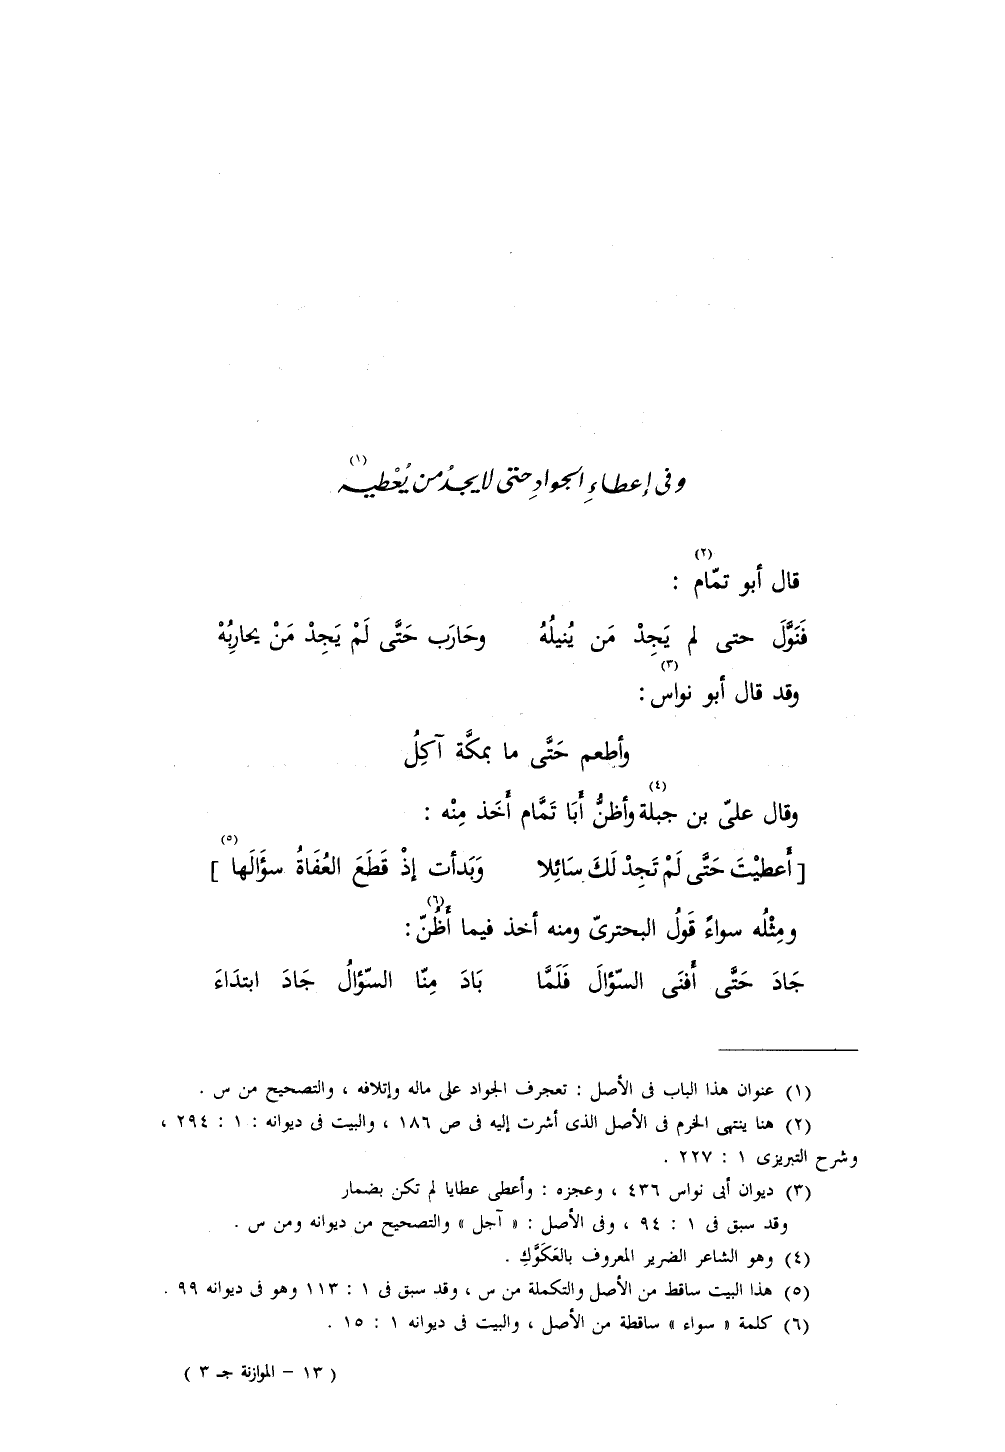 وفى إعطاءِ الجوادِ حتى لا يجدُ من يُعْطيه (١)
قال أبو تمّام (٢) :
فَنَوَّلَ حتى لم يَجِدْ مَن يُنيلُهُ وحَارَب حَتَّى لَمْ يَجِدْ مَنْ يحارِبُهْ
وقد قال أبو نواس (٣) :
وأطعم حَتَّى ما بمكَّة آكِلُ
وقال علىّ بن جبلة (٤) وأظنُّ أَبَا تَمَّام أَخَذ مِنْه :
[ أَعطيْتَ حَتَّى لَمْ تَجِدْ لَكَ سَائِلا وَبَدأت إذْ قَطَعَ العُفَاةُ سؤَالَها (٥) ]
ومِثْلُه سواءً قَولُ البحترىّ ومنه أخذ فيما أَظُنّ (٦) :
جَادَ حَتَّى أَفنَى السّؤالَ فَلَمَّا بَادَ مِنّا السّؤالُ جَادَ ابتدَاءَ
(١) عنوان هذا الباب فى الأصل : تعجرف الجواد على ماله وإتلافه ، والتصحيح من س .
(٢) هنا ينتهى الخرم فى الأصل الذى أشرت إليه فى ص ١٨٦ ، والبيت فى ديوانه : ١ : ٢٩٤ ،
وشرح التبريزى ١ : ٢٢٧ .
(٣) ديوان أبى نواس ٤٣٦ ، وعجزه : وأعطى عطايا لم تكن بضمار
وقد سبق فى ١ : ٩٤ ، وفى الأصل : « آجل » والتصحيح من ديوانه ومن س .
(٤) وهو الشاعر الضرير المعروف بالعَكَوَّكِ .
(٥) هذا البيت ساقط من الأصل والتكملة من س ، وقد سبق فى ١ : ١١٣ وهو فى ديوانه ٩٩ .
(٦) كلمة « سواء » ساقطة من الأصل ، والبيت فى ديوانه ١ : ١٥ .
( ١٣ – الموازنة جـ ٣ )